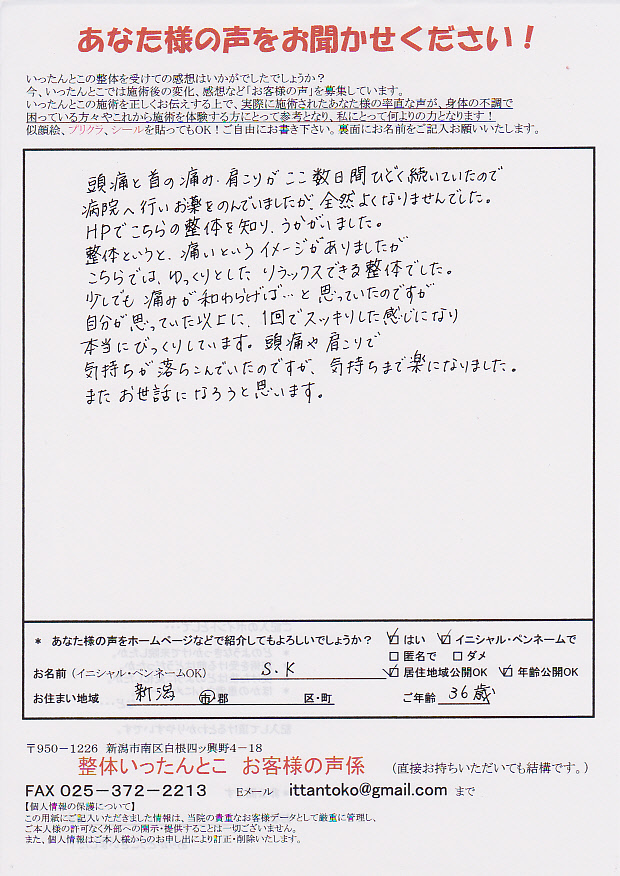 あなた様の声をお聞かせください!
いったんとこの整体を受けての感想はいかがでしたでしょうか?
今、いったんとこでは施術後の変化、感想など「お客様の声」を募集しています。
いったんとこの施術を正しくお伝えする上で、実際に施術されたあなた様の率直な声が、身体の不調で
困っている方々やこれから施術を体験する方にとって参考となり、私にとって何よりの力となります!
似顔絵、プリクラ、シールを貼ってもOK!ご自由にお書き下さい。裏面にお名前をご記入お願いいたします。
頭痛と首の痛み・肩こりがここ数日間ひどく続いていたので
病院へ行いお薬をのんでいましたが、全然よくなりませんでした。
HPでこちらの整体を知り、うかがいました。
整体というと、痛いというイメージがありましたが
こちらでは、ゆっくりとした、リラックスできる整体でした。
少しでも痛みが和わらげば…と思っていたのですが
自分が思っていた以上に、1回でスッキリした感じになり
本当にびっくりしています。頭痛や肩こりで
気持ちが落ちこんでいたのですが、気持ちまで楽になりました。
またお世話になろうと思います。
* あなた様の声をホームページなどで紹介してもよろしいでしょうか? ☑はい ☑イニシャル・ペンネームで
□匿名で □ダメ
お名前(イニシャル・ペンネームOK) S・K ☑居住地域公開OK ☑年齢公開OK
お住まい地域 新潟 市・郡 区・町 ご年齢 36歳
〒950-1226 新潟市南区白根四ッ興野4-18
整体いったんとこ お客様の声係 (直接お持ちいただいても結構です。)
FAX 025-372-2213 Eメール ittantoko@gmail.com まで
【個人情報の保護について】
この用紙にご記入いただきました情報は、当院の貴重なお客様データとして厳重に管理し、
ご本人様の許可なく外部への開示・提供することは一切ございません。
また、個人情報はご本人様からのお申し出により訂正・削除いたします。